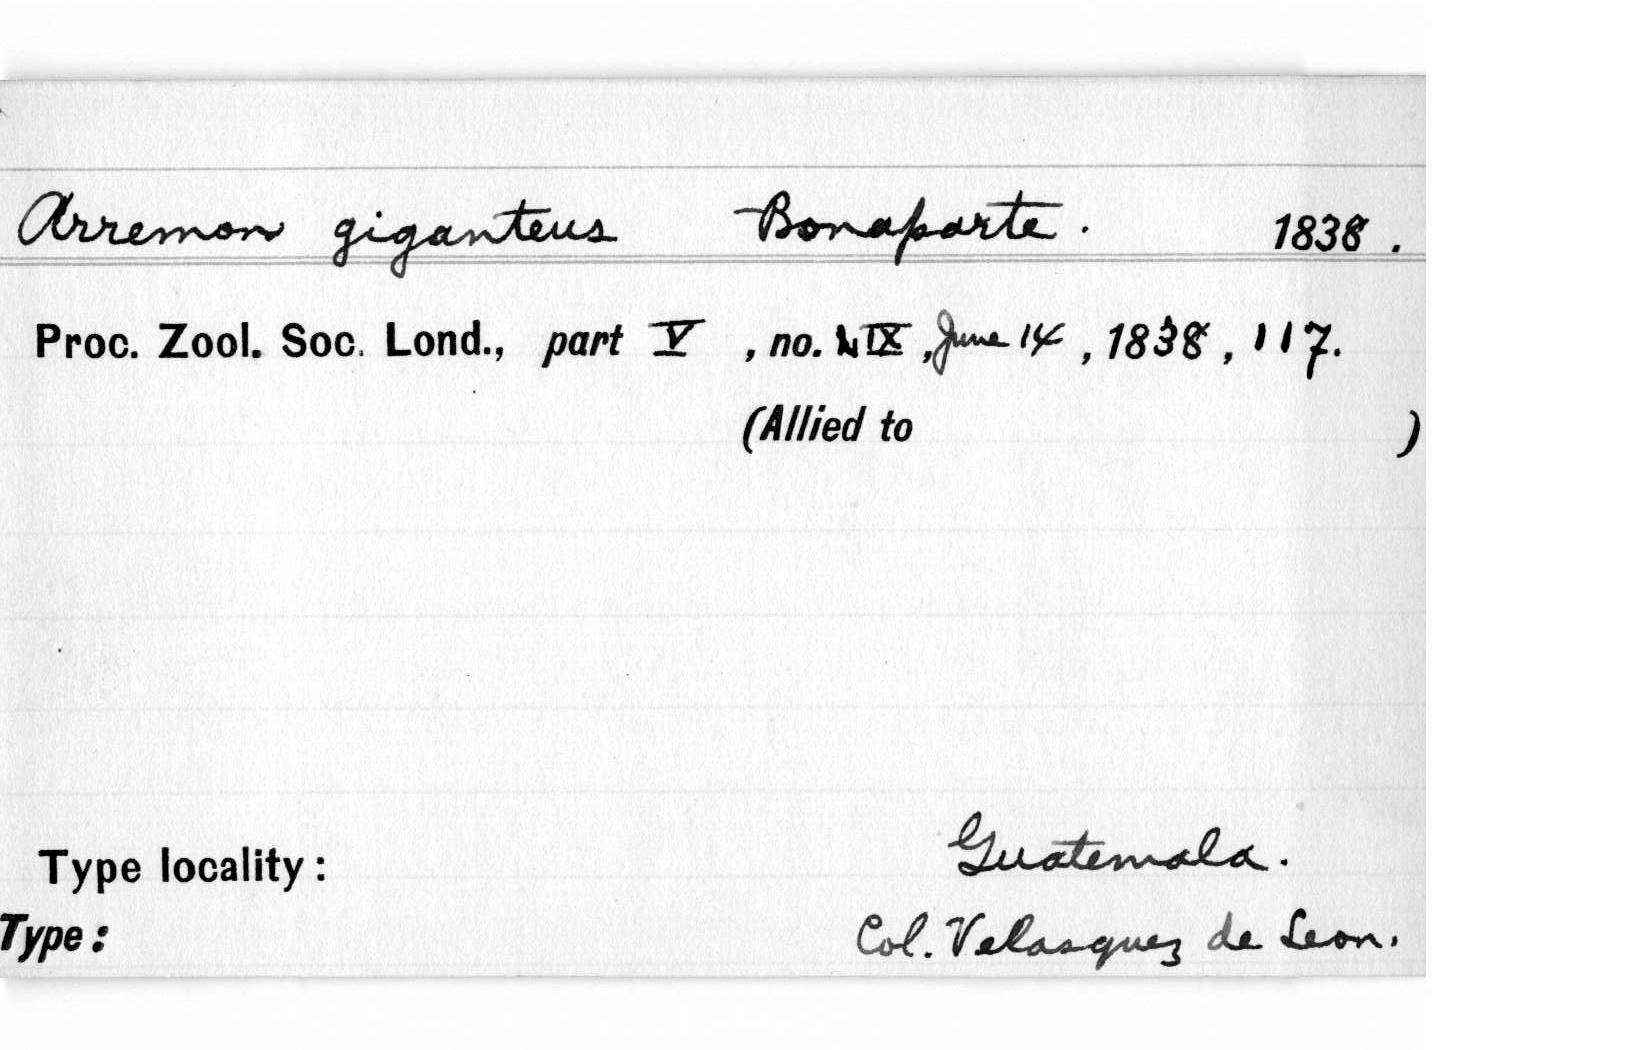 Arremon giganteus Bonaparte. 1838.
Proc. Zool. Soc. Lond., part V, no. LIX, June 14, 1838, 117.
(Allied to )
Type locality: Guatemala.
Type: Col. Velasquez de Leon.